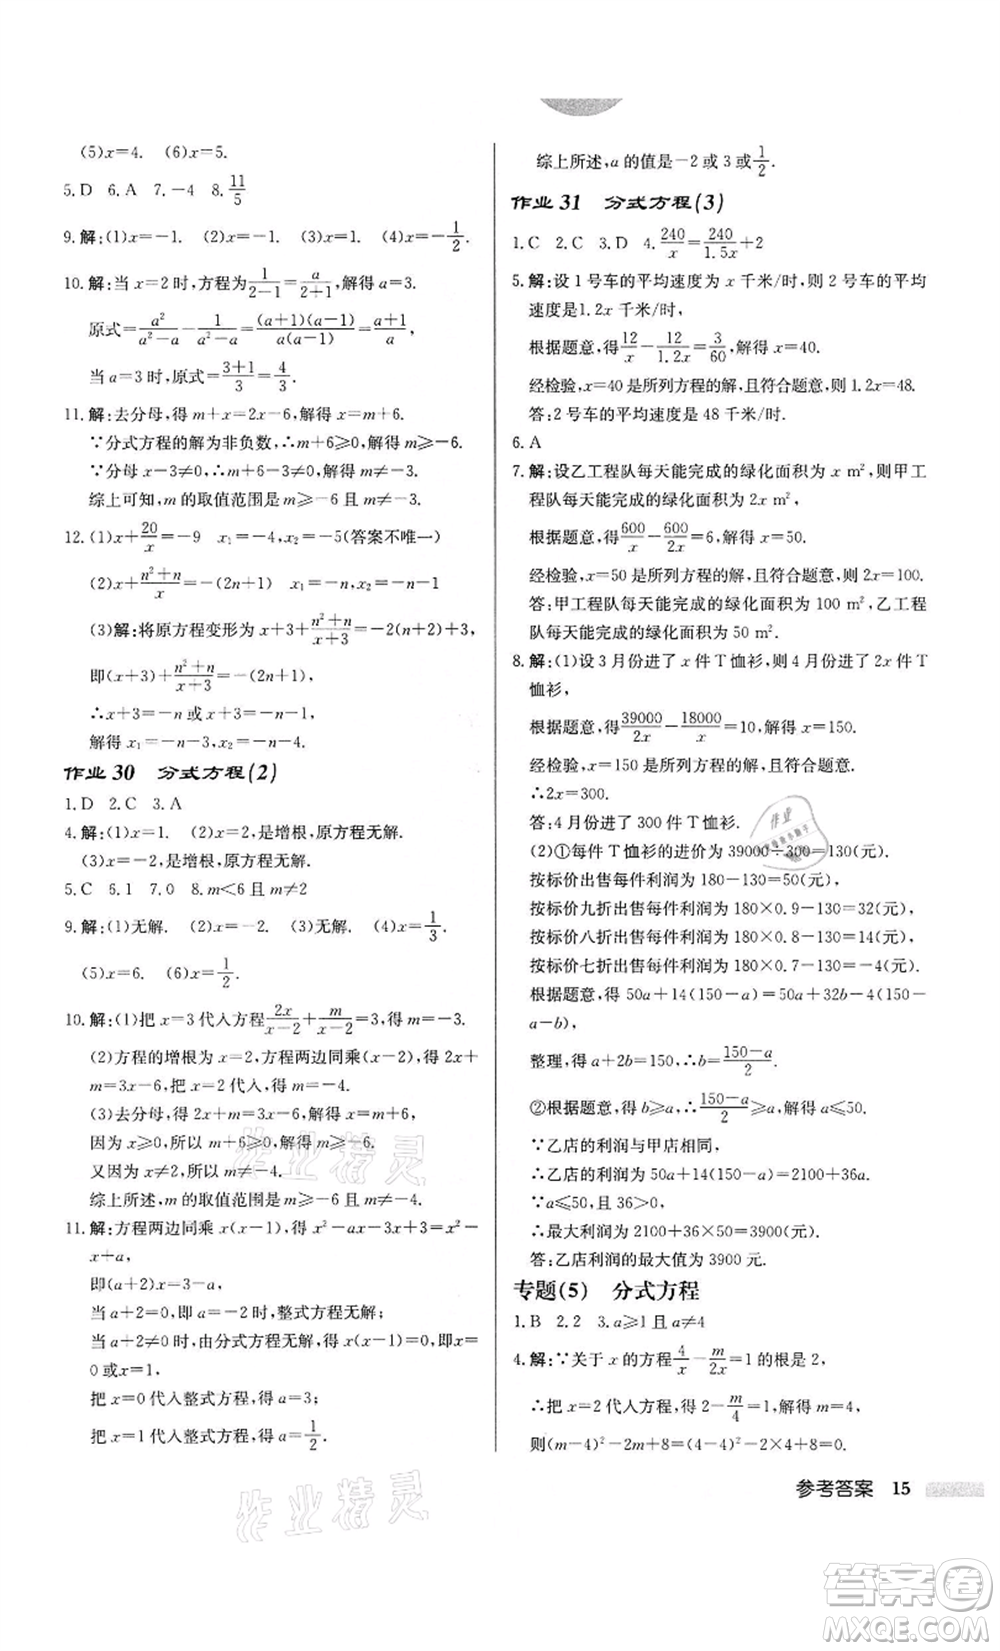 (5)x=4. (6)x=5.
5. D 6. A 7. -4 8. 11/5
9. 解:(1)x=-1. (2)x=-1. (3)x=1. (4)x=-1/2.
10. 解:当 x=2时,方程为1/(2-1)=a/(2+1),解得a=3.
原式=a²/(a²-a)-1/(a²-a)=(a+1)(a-1)/a(a-1)=(a+1)/a,
当 a=3时,原式=(3+1)/3=4/3.
11. 解:去分母,得 m+x=2x-6,解得 x=m+6.
∵分式方程的解为非负数,∴m+6≥0,解得 m≥-6.
∵分母 x-3≠0,∴m+6-3≠0,解得 m≠-3.
综上可知,m 的取值范围是 m≥-6 且 m≠-3.
12. (1)x+20/x=-9 x₁=-4,x₂=-5(答案不唯一)
(2)x+(n²+n)/x=-(2n+1) x₁=-n,x₂=-n-1
(3)解:将原方程变形为 x+3+(n²+n)/(x+3)=-2(n+2)+3,
即(x+3)+(n²+n)/(x+3)=-(2n+1),
∴x+3=-n或x+3=-(n+1),
解得 x₁=-n-3,x₂=-n-4.
作业 30 分式方程(2)
1. D 2. C 3. A
4. 解:(1)x=1. (2)x=2,是增根,原方程无解.
(3)x=-2,是增根,原方程无解.
5. C 6. 1 7. 0 8. m<6 且 m≠2
9. 解:(1)无解. (2)x=-2. (3)无解. (4)x=1/3.
(5)x=6. (6)x=1/2.
10. 解:(1)把 x=3代入方程2x/(x-2)+m/(x-2)=3,得 m=-3.
(2)方程的增根为 x=2,方程两边同乘(x-2),得 2x+
m=3x-6,把 x=2 代入,得 m=-4.
(3)去分母,得 2x+m=3x-6,解得 x=m+6.
因为 x≥0,所以 m+6≥0,解得 m≥-6.
又因为 x≠2,所以 m+6≠2,解得 m≠-4.
综上所述,m 的取值范围是 m≥-6 且 m≠-4.
11. 解:方程两边同乘 x(x-1),得 x²-ax-3x+3=x²-
x+a,
即(a+2)x=3-a,
当 a+2=0,即 a=-2 时,整式方程无解;
当 a+2≠0,即 a≠-2 时,由分式方程无解,得 x=
0或x=1,
把 x=0代入整式方程,得 a=3;
把 x=1代入整式方程,得 a=1/2.
综上所述,a 的值是-2 或 3 或1/2.
作业 31 分式方程(3)
1. C 2. C 3. D 4. 240/x=240/1.5x+2
5. 解:设 1 号车的平均速度为 x 千米/时,则 2 号车的平均
速度是1.2x 千米/时.
根据题意,得12/x-12/1.2x=3/60,解得 x=40.
经检验,x=40 是所列方程的解,且符合题意,则 1.2x=48.
答:2 号车的平均速度是 48 千米/时.
6. A
7. 解:设乙工程队每天能完成的绿化面积为 x m²,则甲工
程队每天能完成的绿化面积为 2x m².
根据题意,得600/x-600/2x=6,解得 x=50.
经检验,x=50 是所列方程的解,且符合题意,则 2x=100.
答:甲工程队每天能完成的绿化面积为 100 m²,乙工程
队每天能完成的绿化面积为 50 m².
8. 解:(1)设 3 月份进了 x 件 T 恤衫,则 4 月份进了 2x 件 T
恤衫,
根据题意,得39000/2x-18000/x=10,解得 x=150.
经检验,x=150 是所列方程的解,且符合题意.
∴2x=300.
答:4 月份进了 300 件 T 恤衫.
(2)①每件 T 恤衫的进价为 39000÷300=130(元),
按标价出售每件利润为 180-130=50(元),
按标价九折出售每件利润为 180×0.9-130=32(元),
按标价八折出售每件利润为 180×0.8-130=14(元),
按标价七折出售每件利润为 180×0.7-130=-4(元).
根据题意,得 50a+14(150-a)=50a+32b-4(150-
a-b),
整理,得 a+2b=150,∴b=(150-a)/2.
②根据题意,得 b≥a,∴(150-a)/2≥a,解得 a≤50.
∵乙店的利润与甲店相同,
∴乙店的利润为 50a+14(150-a)=2100+36a.
∵a≤50,且 36>0,
∴最大利润为 2100+36×50=3900(元),
答:乙店利润的最大值为 3900 元.
专题(5) 分式方程
1. B 2. 2 3. a≥1 且 a≠4
4. 解:∵关于 x 的方程4/x-m/2x=1 的根是 2,
∴把 x=2 代入方程,得 2-m/4=1,解得 m=4,
则(m-4)²-2m+8=(4-4)²-2×4+8=0.
参考答案 15
作业精灵
作业精灵
作业
答案卷
MXQE.COM